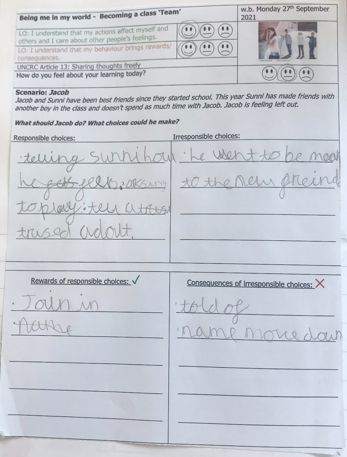 Being me in my world - Becoming a class 'Team'
w.b. Monday 27th September 2021
LO: I understand that my actions affect myself and others and I care about other people's feelings.
LO: I understand that my behaviour brings rewards/consequences.
UNCRC Article 13: Sharing thoughts freely
How do you feel about your learning today?
Scenario: Jacob
Jacob and Sunni have been best friends since they started school. This year Sunni has made friends with
another boy in the class and doesn't spend as much time with Jacob. Jacob is feeling left out.
What should Jacob do? What choices could he make?
Responsible choices:
telling Sunni how
he feels
to play. tell a
trused adout.
Irresponsible choices:
he went to be mean
to the new freind
Rewards of responsible choices: ✓
Join in
Consequences of irresponsible choices: ✗
told of
name move down